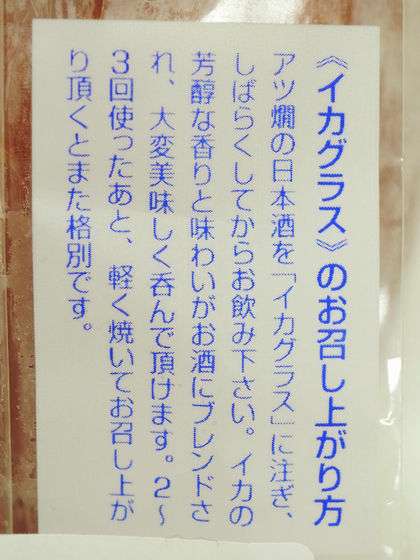 《イカグラス》のお召し上がり方
アツ燗の日本酒を「イカグラス」に注ぎ、
しばらくしてからお飲み下さい。イカの
芳醇な香りと味わいがお酒にブレンドさ
れ、大変美味しく呑んで頂けます。2〜
3回使ったあと、軽く焼いてお召し上が
り頂くとまた格別です。